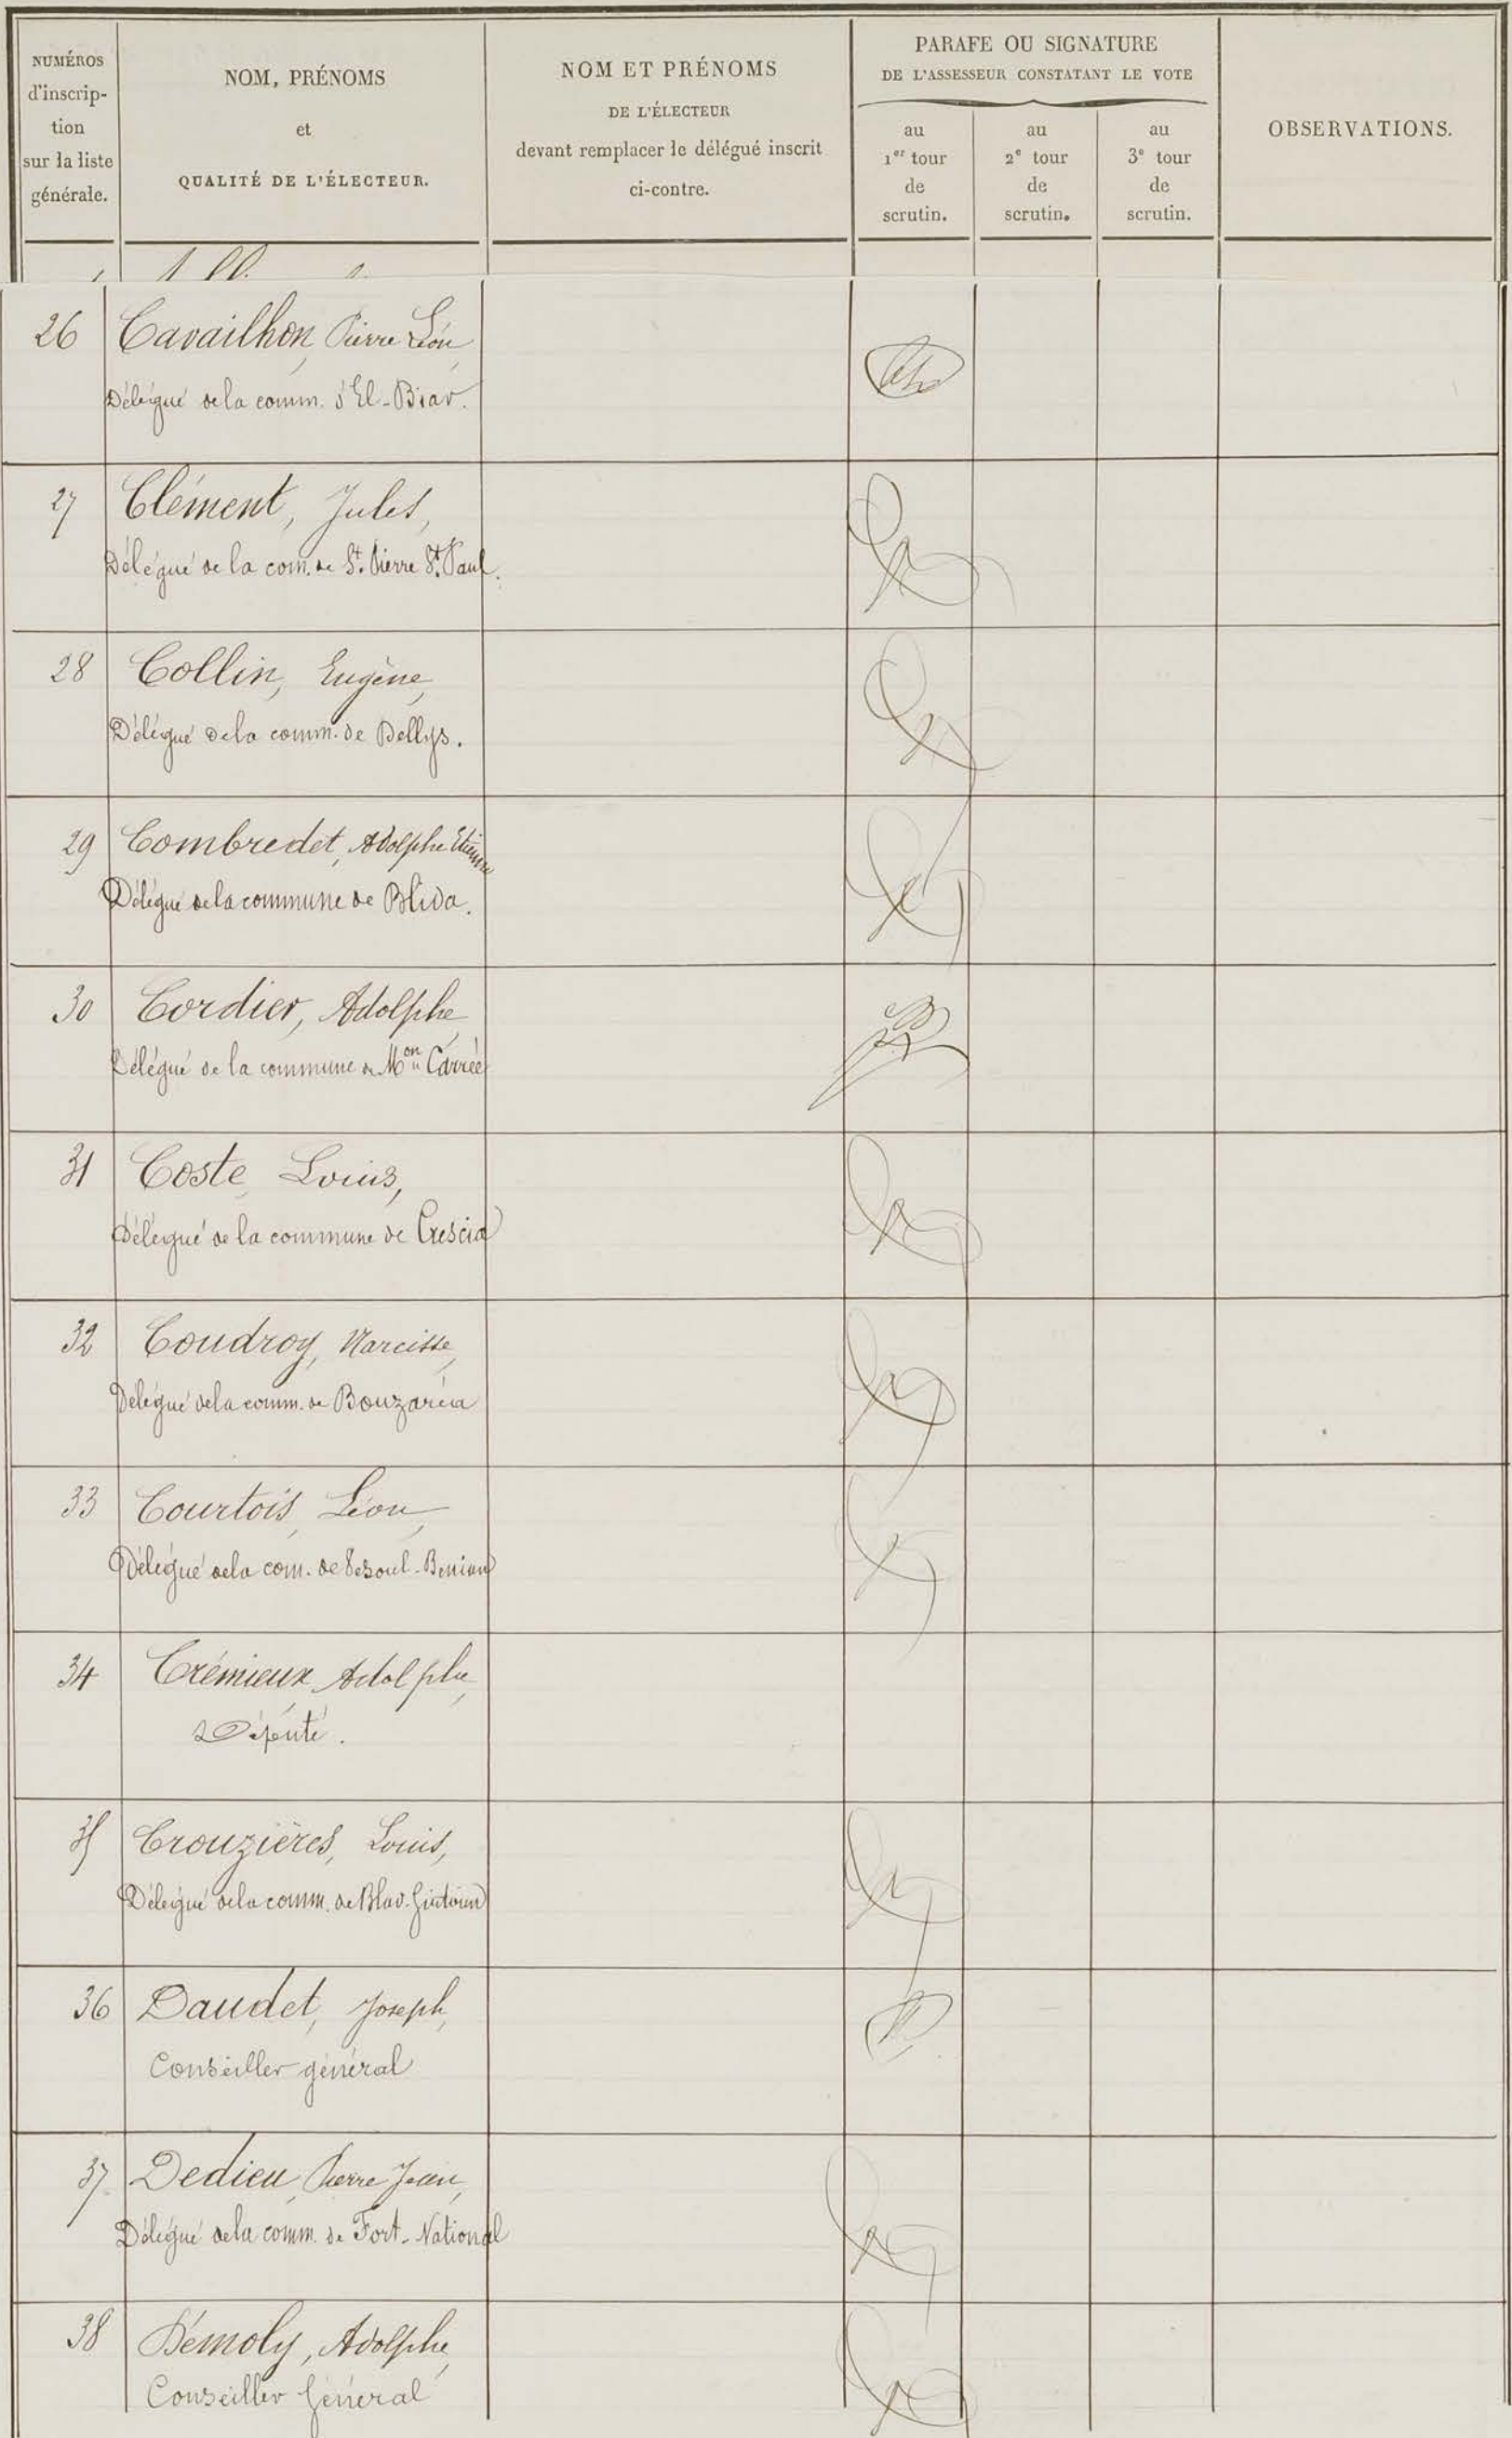 NUMÉROS
d'inscrip-
tion
sur la liste
générale.
NOM, PRÉNOMS
et
QUALITÉ DE L'ÉLECTEUR.
NOM ET PRÉNOMS
DE L'ÉLECTEUR
devant remplacer le délégué inscrit
ci-contre.
PARAFE OU SIGNATURE
DE L'ASSESSEUR CONSTATANT LE VOTE
au
1er tour
de
scrutin.
au
2e tour
de
scrutin.
au
3e tour
de
scrutin.
OBSERVATIONS.
26 Cavailhon, Pierre Léon,
Délégué de la comm. d'El-Biar.
27 Clément, Jules,
Délégué de la com. de St. Pierre St. Paul.
28 Collin, Eugène,
Délégué de la comm. de Dellys.
29 Combredet, Adolphe Etienne
Délégué de la commune de Blida.
30 Cordier, Adolphe,
Délégué de la commune de Mon Carrée
31 Coste, Louis,
Délégué de la commune de Crescia
32 Coudroy, Narcisse,
Délégué de la comm. de Bouzaréa
33 Courtois, Léon,
Délégué de la com. de Vesoul-Benian
34 Crémieux, Adolphe,
Député.
35 Crouzières, Louis,
Délégué de la comm. de Blad-Guitoun
36 Daudet, Joseph,
Conseiller général
37 Dedieu, Pierre Jean,
Délégué de la comm. de Fort-National
38 Démoly, Adolphe,
Conseiller Général